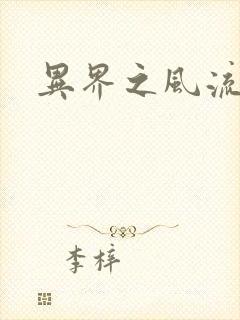 異界之風流
李梓